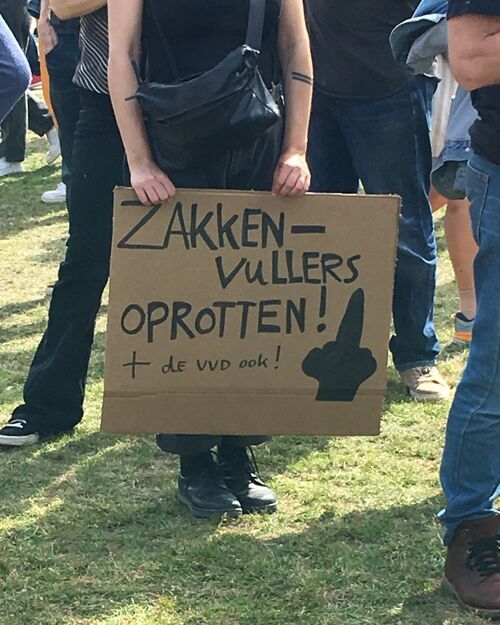 ZAKKEN-
VULLERS
OPROTTEN!
+ de VVD ook!